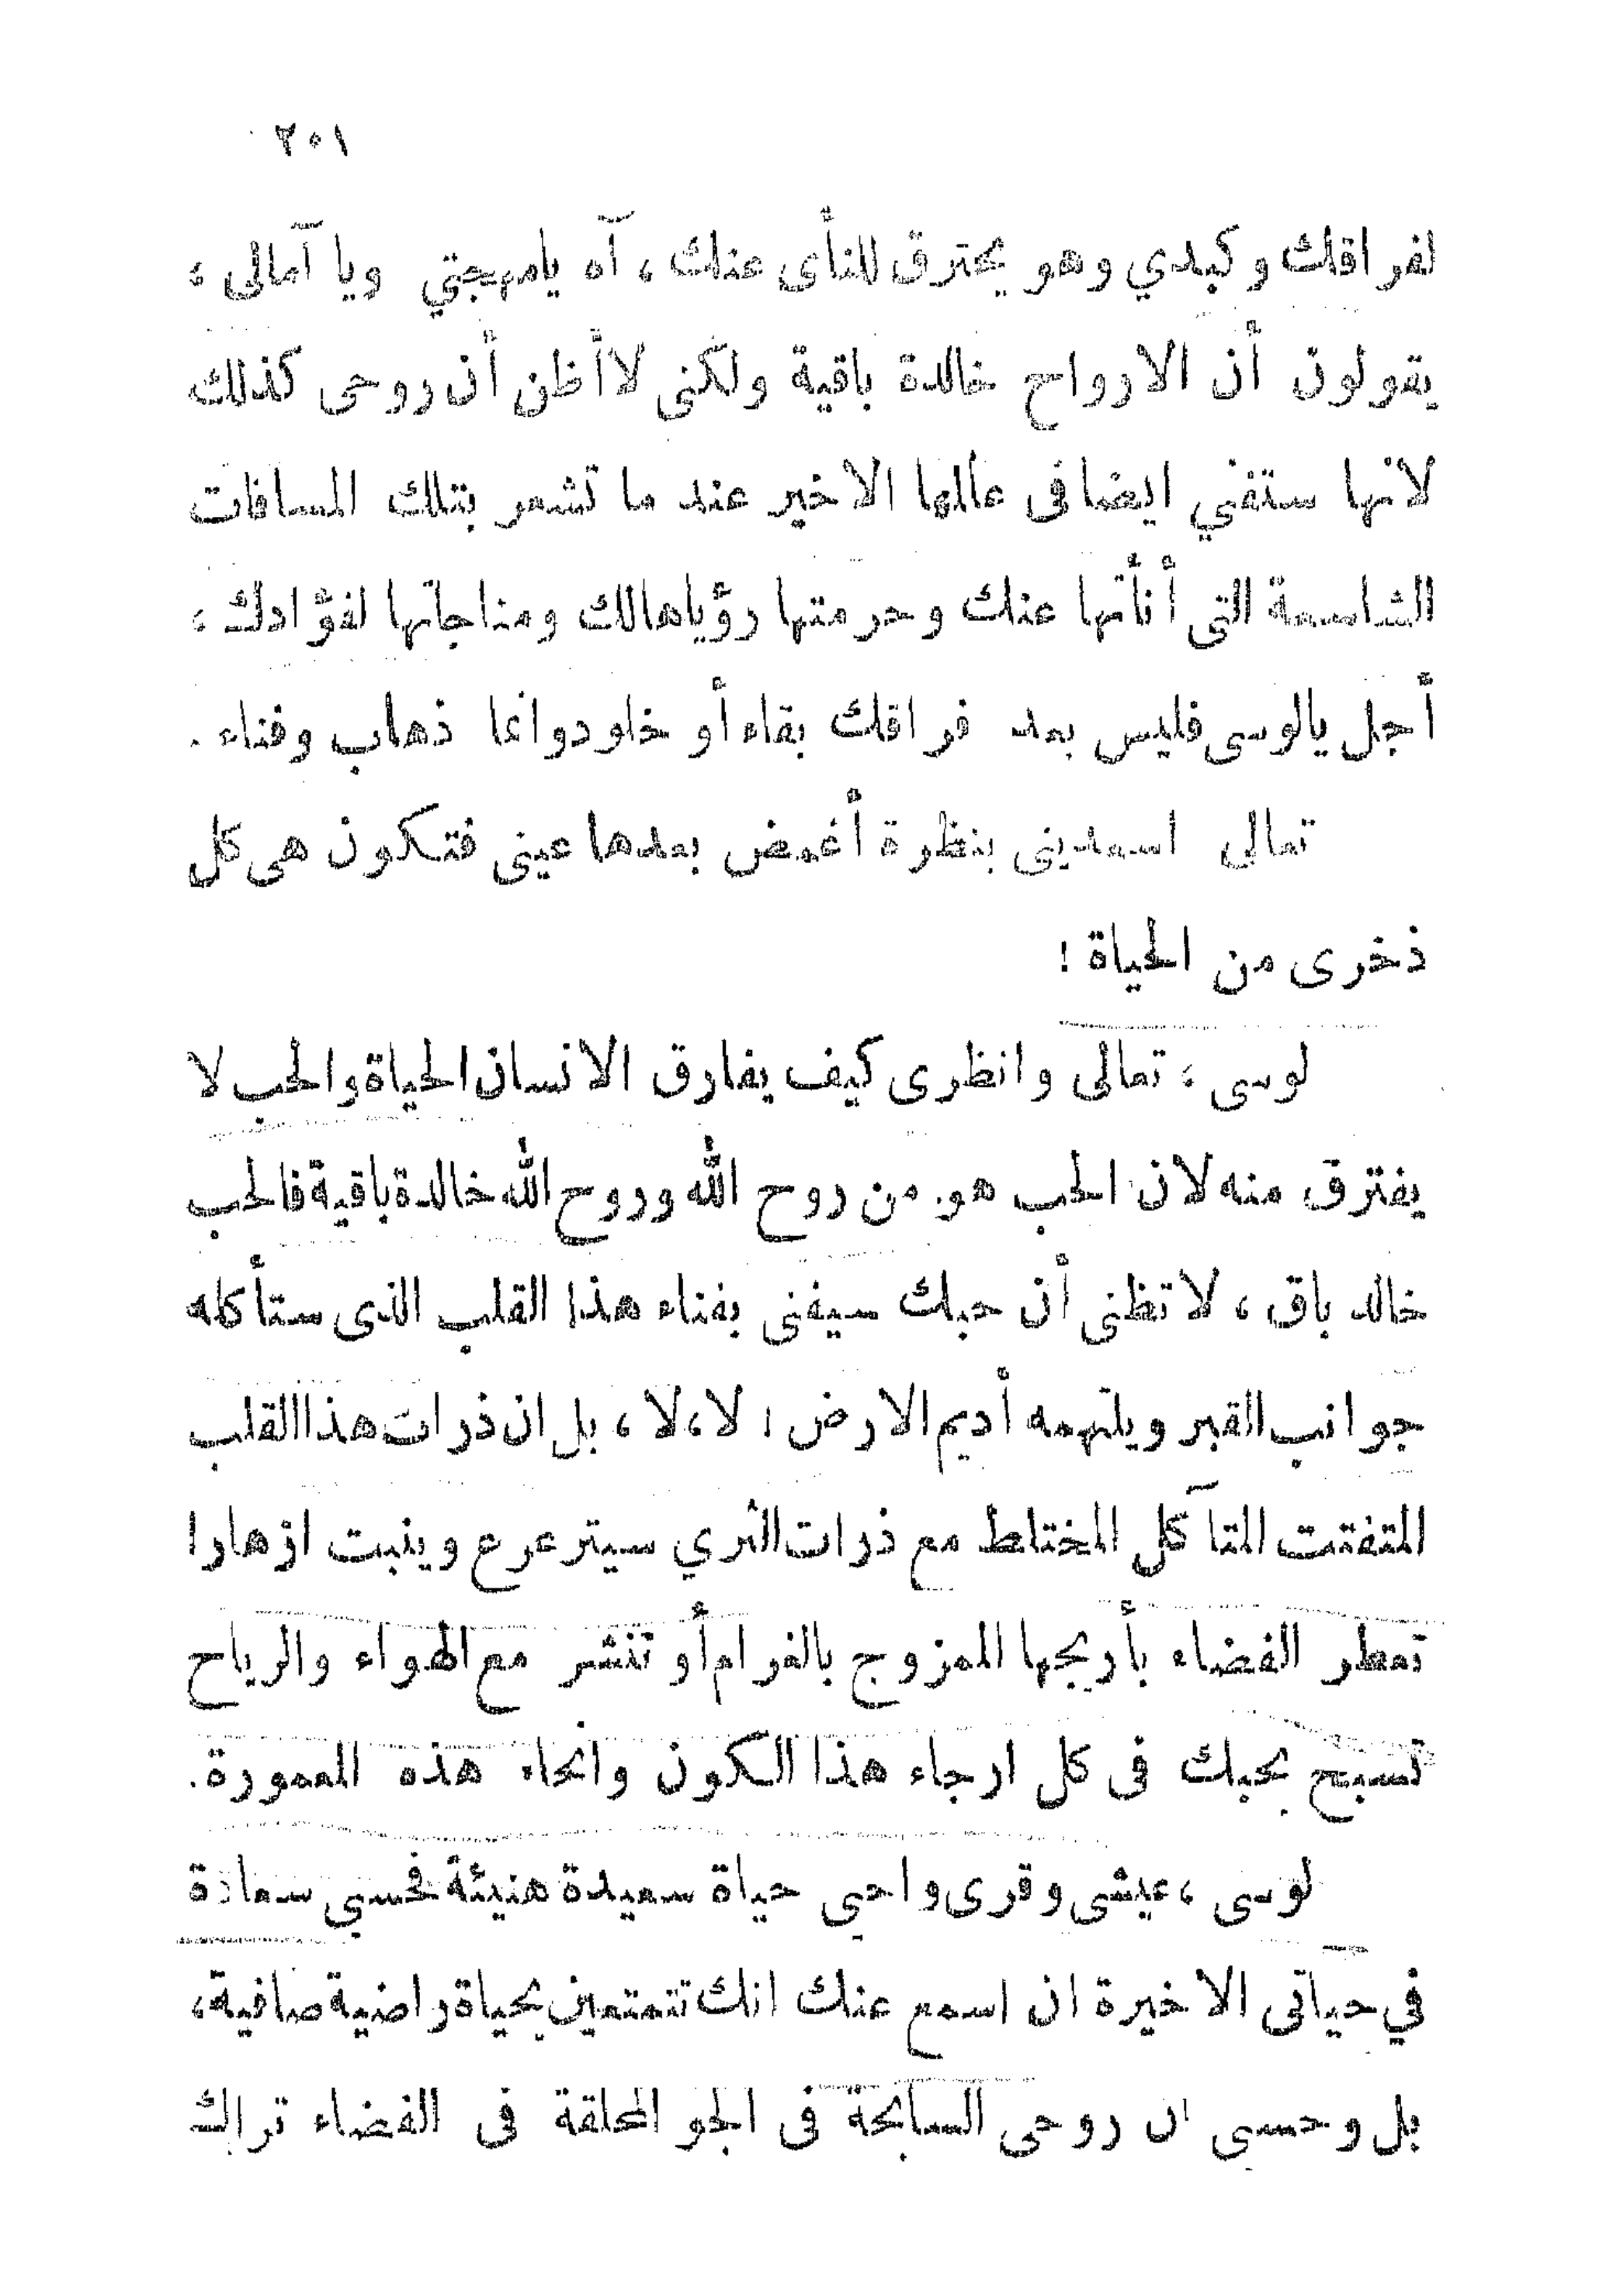 ٢٠١
لفراقك وكبدي وهو يحترق للنأى عنك ، آه يامهجتي ويا آمالى ،
يقولون أن الارواح خالدة باقية ولكنى لا أظن أن روحى كذلك
لانها ستفني ايضا فى عالمها الاخير عند ما تشعر بتلك المسافات
الشاسعة التى أنأتها عنك وحرمتها رؤياهالك ومناجاتها لفؤادك ،
أجل يالوسى فليس بعد فراقك بقاء أو خلود وانما ذهاب وفناء .
تعالى اسعدينى بنظرة أغمض بعدها عينى فتكون هى كل
ذخرى من الحياة !
لوسى ، تعالى وانظرى كيف يفارق الانسان الحياة والحب لا
يفترق منه لان الحب هو من روح الله وروح الله خالدة باقية فالحب
خالد باق ، لا تظنى أن حبك سيفنى بفناء هذا القلب الذى ستأكله
جوانب القبر ويلتهمه أديم الارض ؛ لا ، لا ، بل ان ذرات هذا القلب
المتفتت المتآكل المختلط مع ذرات الثري سيترعرع وينبت ازهارا
تعطر الفضاء بأريجها الممزوج بالغرام أو تنشر مع الهواء والرياح
تسبح بحبك فى كل ارجاء هذا الكون وانحاء هذه المعمورة .
لوسى ، عيشى وقرى واحيى حياة سعيدة هنيئة فحسبي سعادة
في حياتى الاخيرة ان اسمع عنك انك تتمتعين بحياة راضية صافية ،
بل وحسبى ان روحى السابحة فى الجو المحلقة فى الفضاء تراك